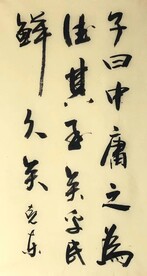 子曰中庸之為
德其至矣乎民
鮮久矣克東